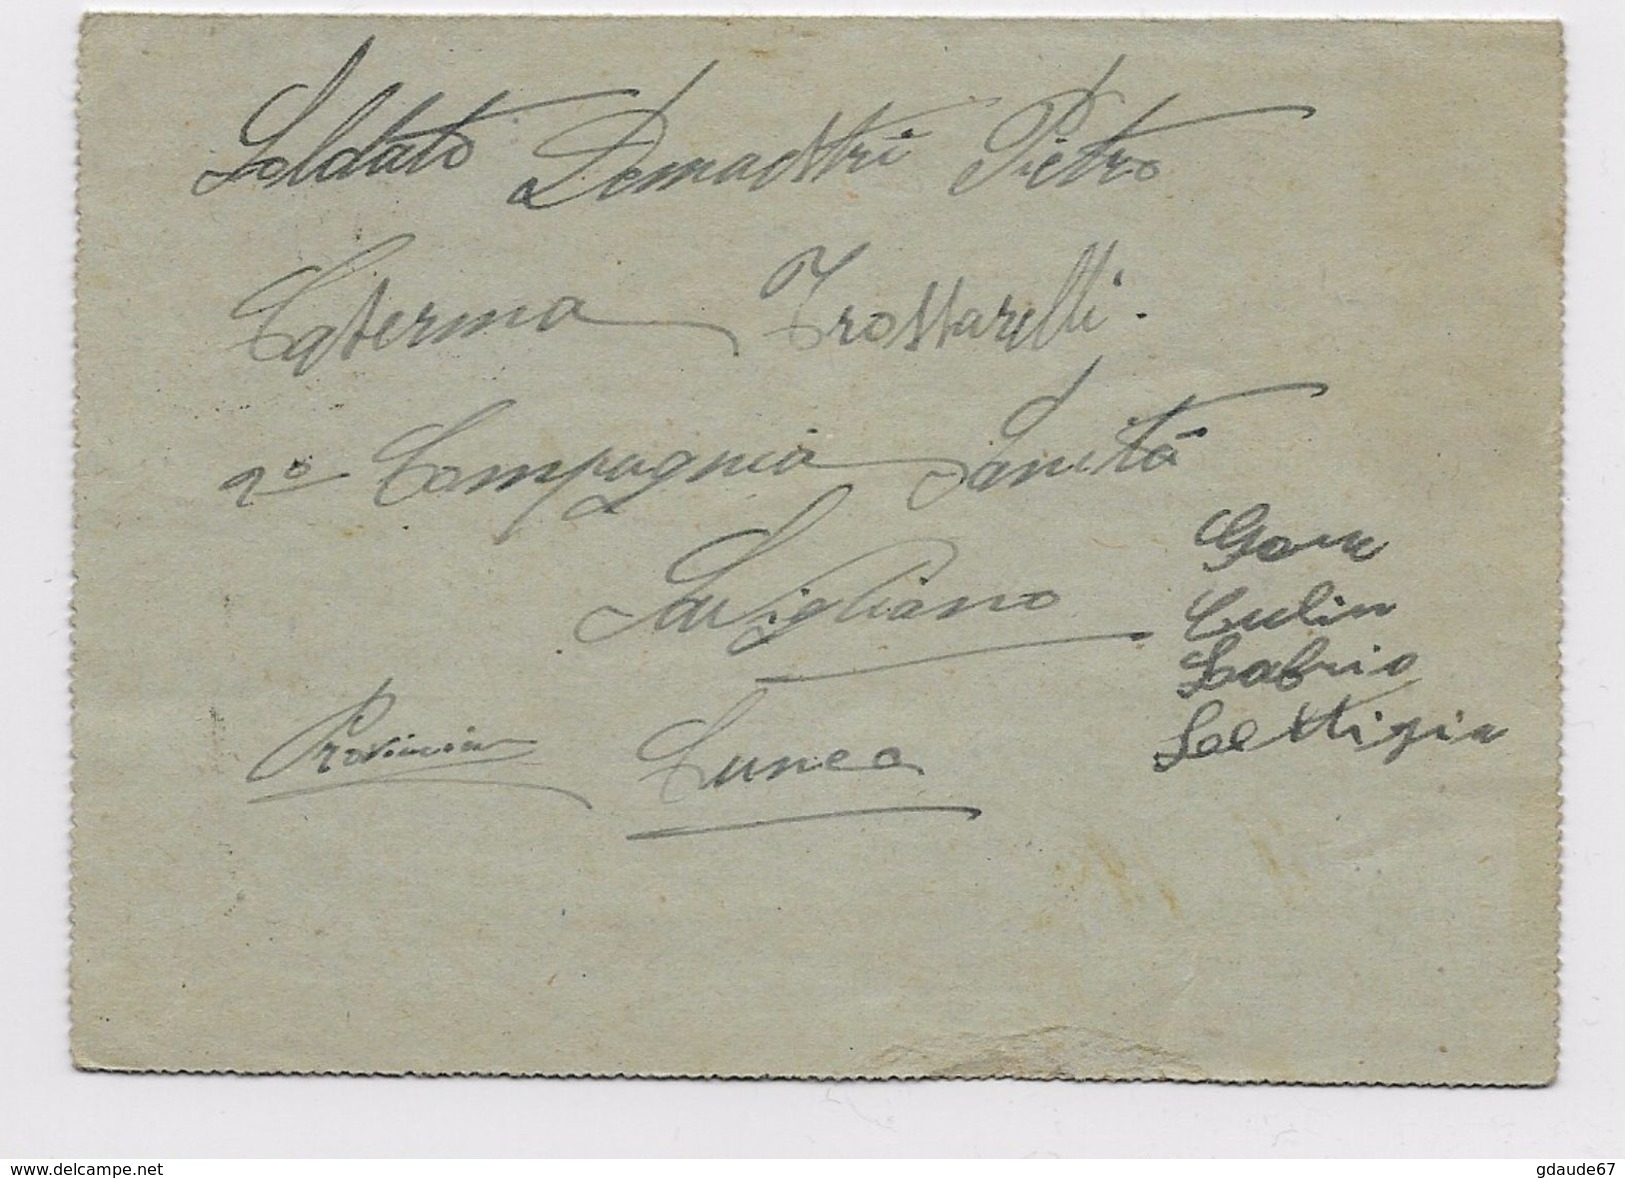 Soldato Demaestri Pietro
Caserma Trossarelli.
2º Compagnia Sanità
Savigliano
Provincia Cuneo
www.delcampe.net
gdaude67